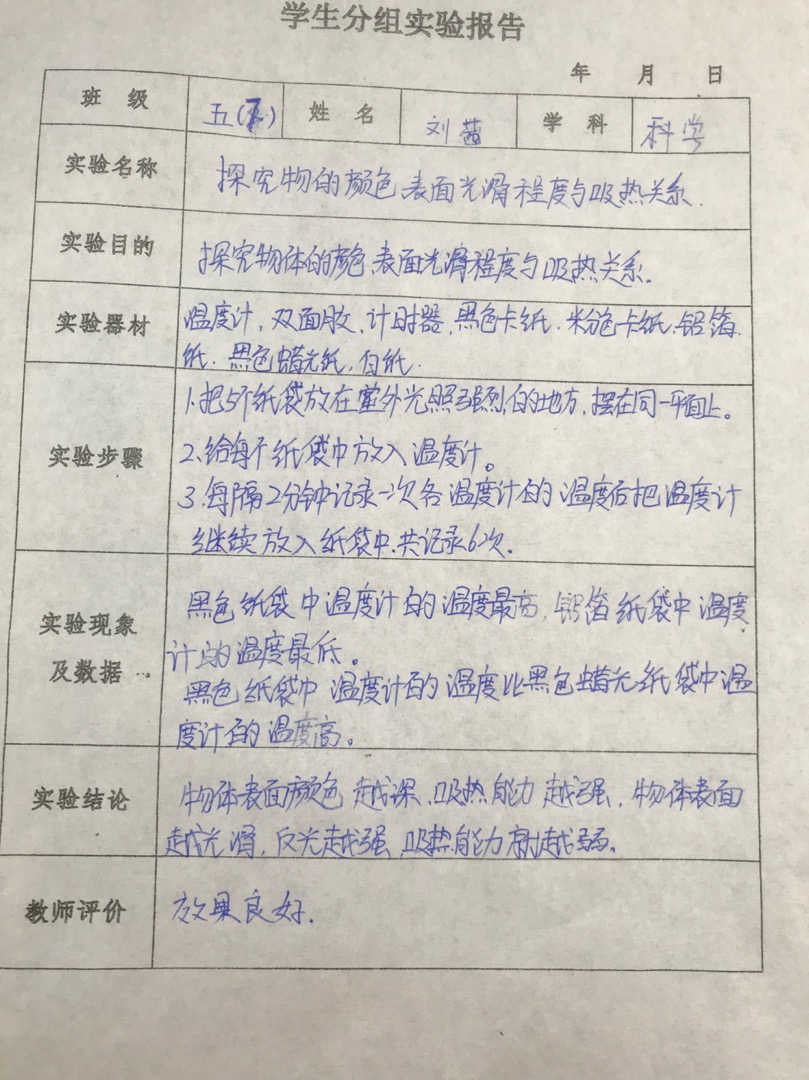 学生分组实验报告
年 月 日
班 级 五(7.) 姓 名 刘茜 学 科 科学
实验名称 探究物的颜色表面光滑程度与吸热关系.
实验目的 探究物体的颜色表面光滑程度与吸热关系.
实验器材 温度计,双面胶、计时器、黑色卡纸.粉色卡纸.铝箔
纸.黑色蜡光纸,白纸.
实验步骤
1.把5个纸袋放在室外光照强烈的地方,摆在同一平面上。
2.给每个纸袋中放入温度计。
3.每隔2分钟记录一次各温度计的温度后把温度计
继续放入纸袋中.共记录6次.
实验现象
及数据
黑色纸袋中温度计的温度最高,铝箔纸袋中温度
计的温度最低。
黑色纸袋中温度计的温度比黑色蜡光纸袋中温
度计的温度高。
实验结论 物体表面颜色越深、吸热能力越强,物体表面
越光滑,反光越强,吸热能力越弱。
教师评价 效果良好.